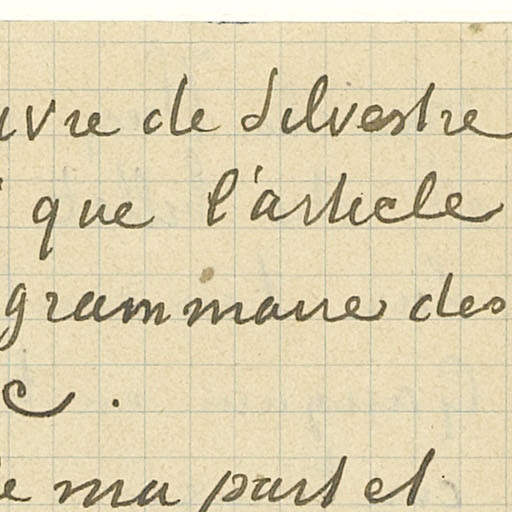 uvre de Silvestre
que l'article
grammaire des
c.
e ma part et